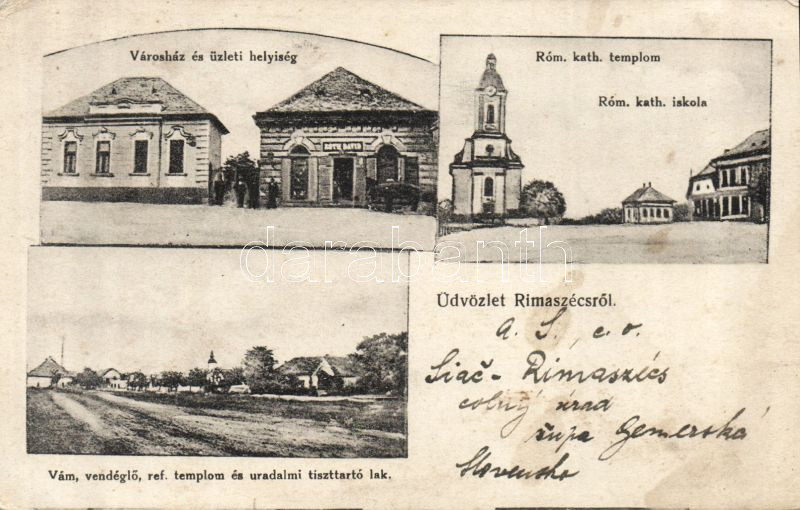 Városház és üzleti helyiség
ROTH DAVID
Róm. kath. templom
Róm. kath. iskola
darabanth
Üdvözlet Rimaszécsről.
A. S., c. o.
Siač - Rimaszécs
colný úrad
župa Gemerská
Slovensko
Vám, vendéglő, ref. templom és uradalmi tiszttartó lak.